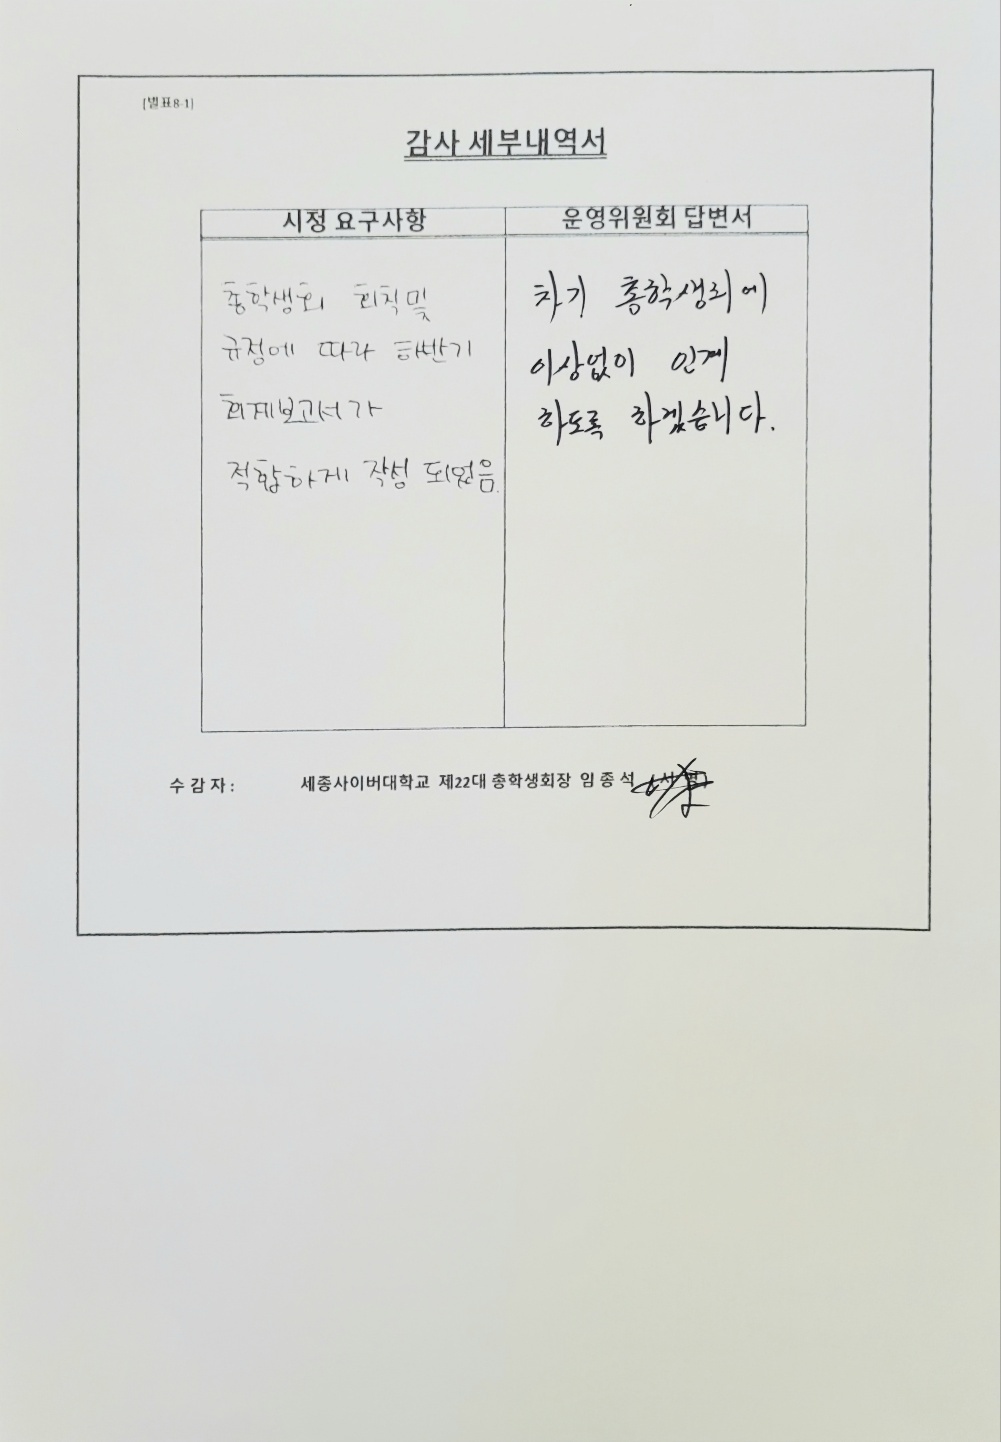 [별표8-1]
감사 세부내역서
시정 요구사항
운영위원회 답변서
총학생회 회칙 및
규정에 따라 하반기
회계보고서가
적합하게 작성 되었음.
차기 총학생회에
이상없이 인계
하도록 하겠습니다.
수 감 자 : 세종사이버대학교 제22대 총학생회장 임 종 석